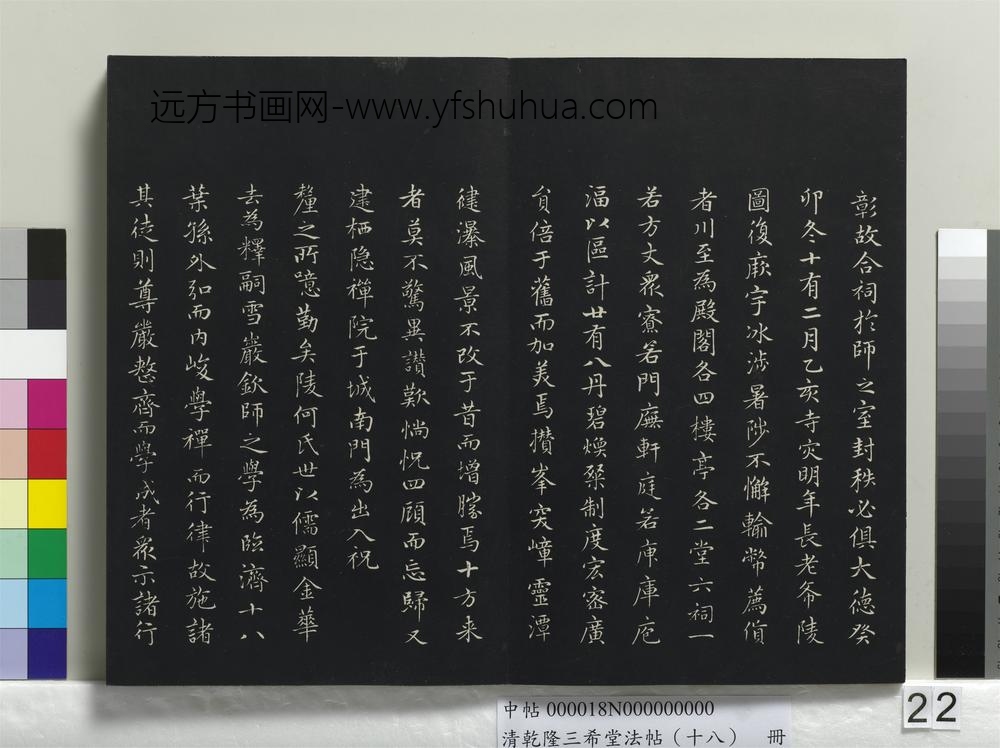 远方书画网-www.yfshuhua.com
彰故合祠於師之室封秩必俱大德癸
卯冬十有二月乙亥寺灾明年長老希陵
圖復厥宇冰涉暑陟不懈輸幣薦貨
者川至為殿閣各四樓亭各二堂六祠一
若方丈眾寮若門廡軒庭若庫庖
湢以區計卅有八丹碧煥粲制度宏密廣
袤倍于舊而加美焉攢峯突嶂靈潭
健瀑風景不改于昔而增勝焉十方来
者莫不驚異讚歎惝怳四顧而忘歸又
建栖隐禪院于城南門為出入祝
釐之所噫勤矣陵何氏世以儒顯金華
去為釋嗣雪巖欽師之學為臨濟十八
葉孫外弘而内峻學禪而行律故施諸
其徒則尊嚴整齊而學成者眾示諸行
中帖 000018N000000000
清乾隆三希堂法帖（十八） 冊
22